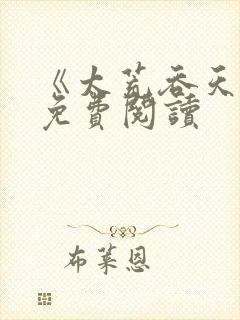 《大荒吞天
免費閱讀
布萊恩